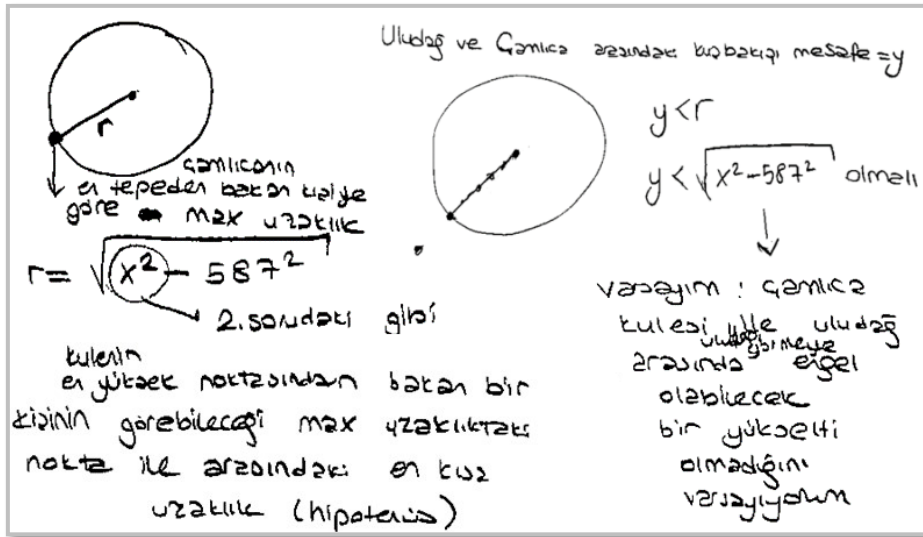 r
Çamlıcanın
en tepeden bakan kişiye
göre max uzaklık
r = √x² - 587²
2. sorudaki gibi
kulenin
en yüksek noktasından bakan bir
kişinin görebileceği max uzaklıktaki
nokta ile arasındaki en kısa
uzaklık (hipotenüs)
Uludağ ve Çamlıca arasındaki kuşbakışı mesafe = y
y < r
y < √x² - 587² olmalı
varsayım : Çamlıca
kulesi ile uludağ
uludağı görmeye
arasında engel
olabilecek
bir yükselti
olmadığını
varsayıyorum